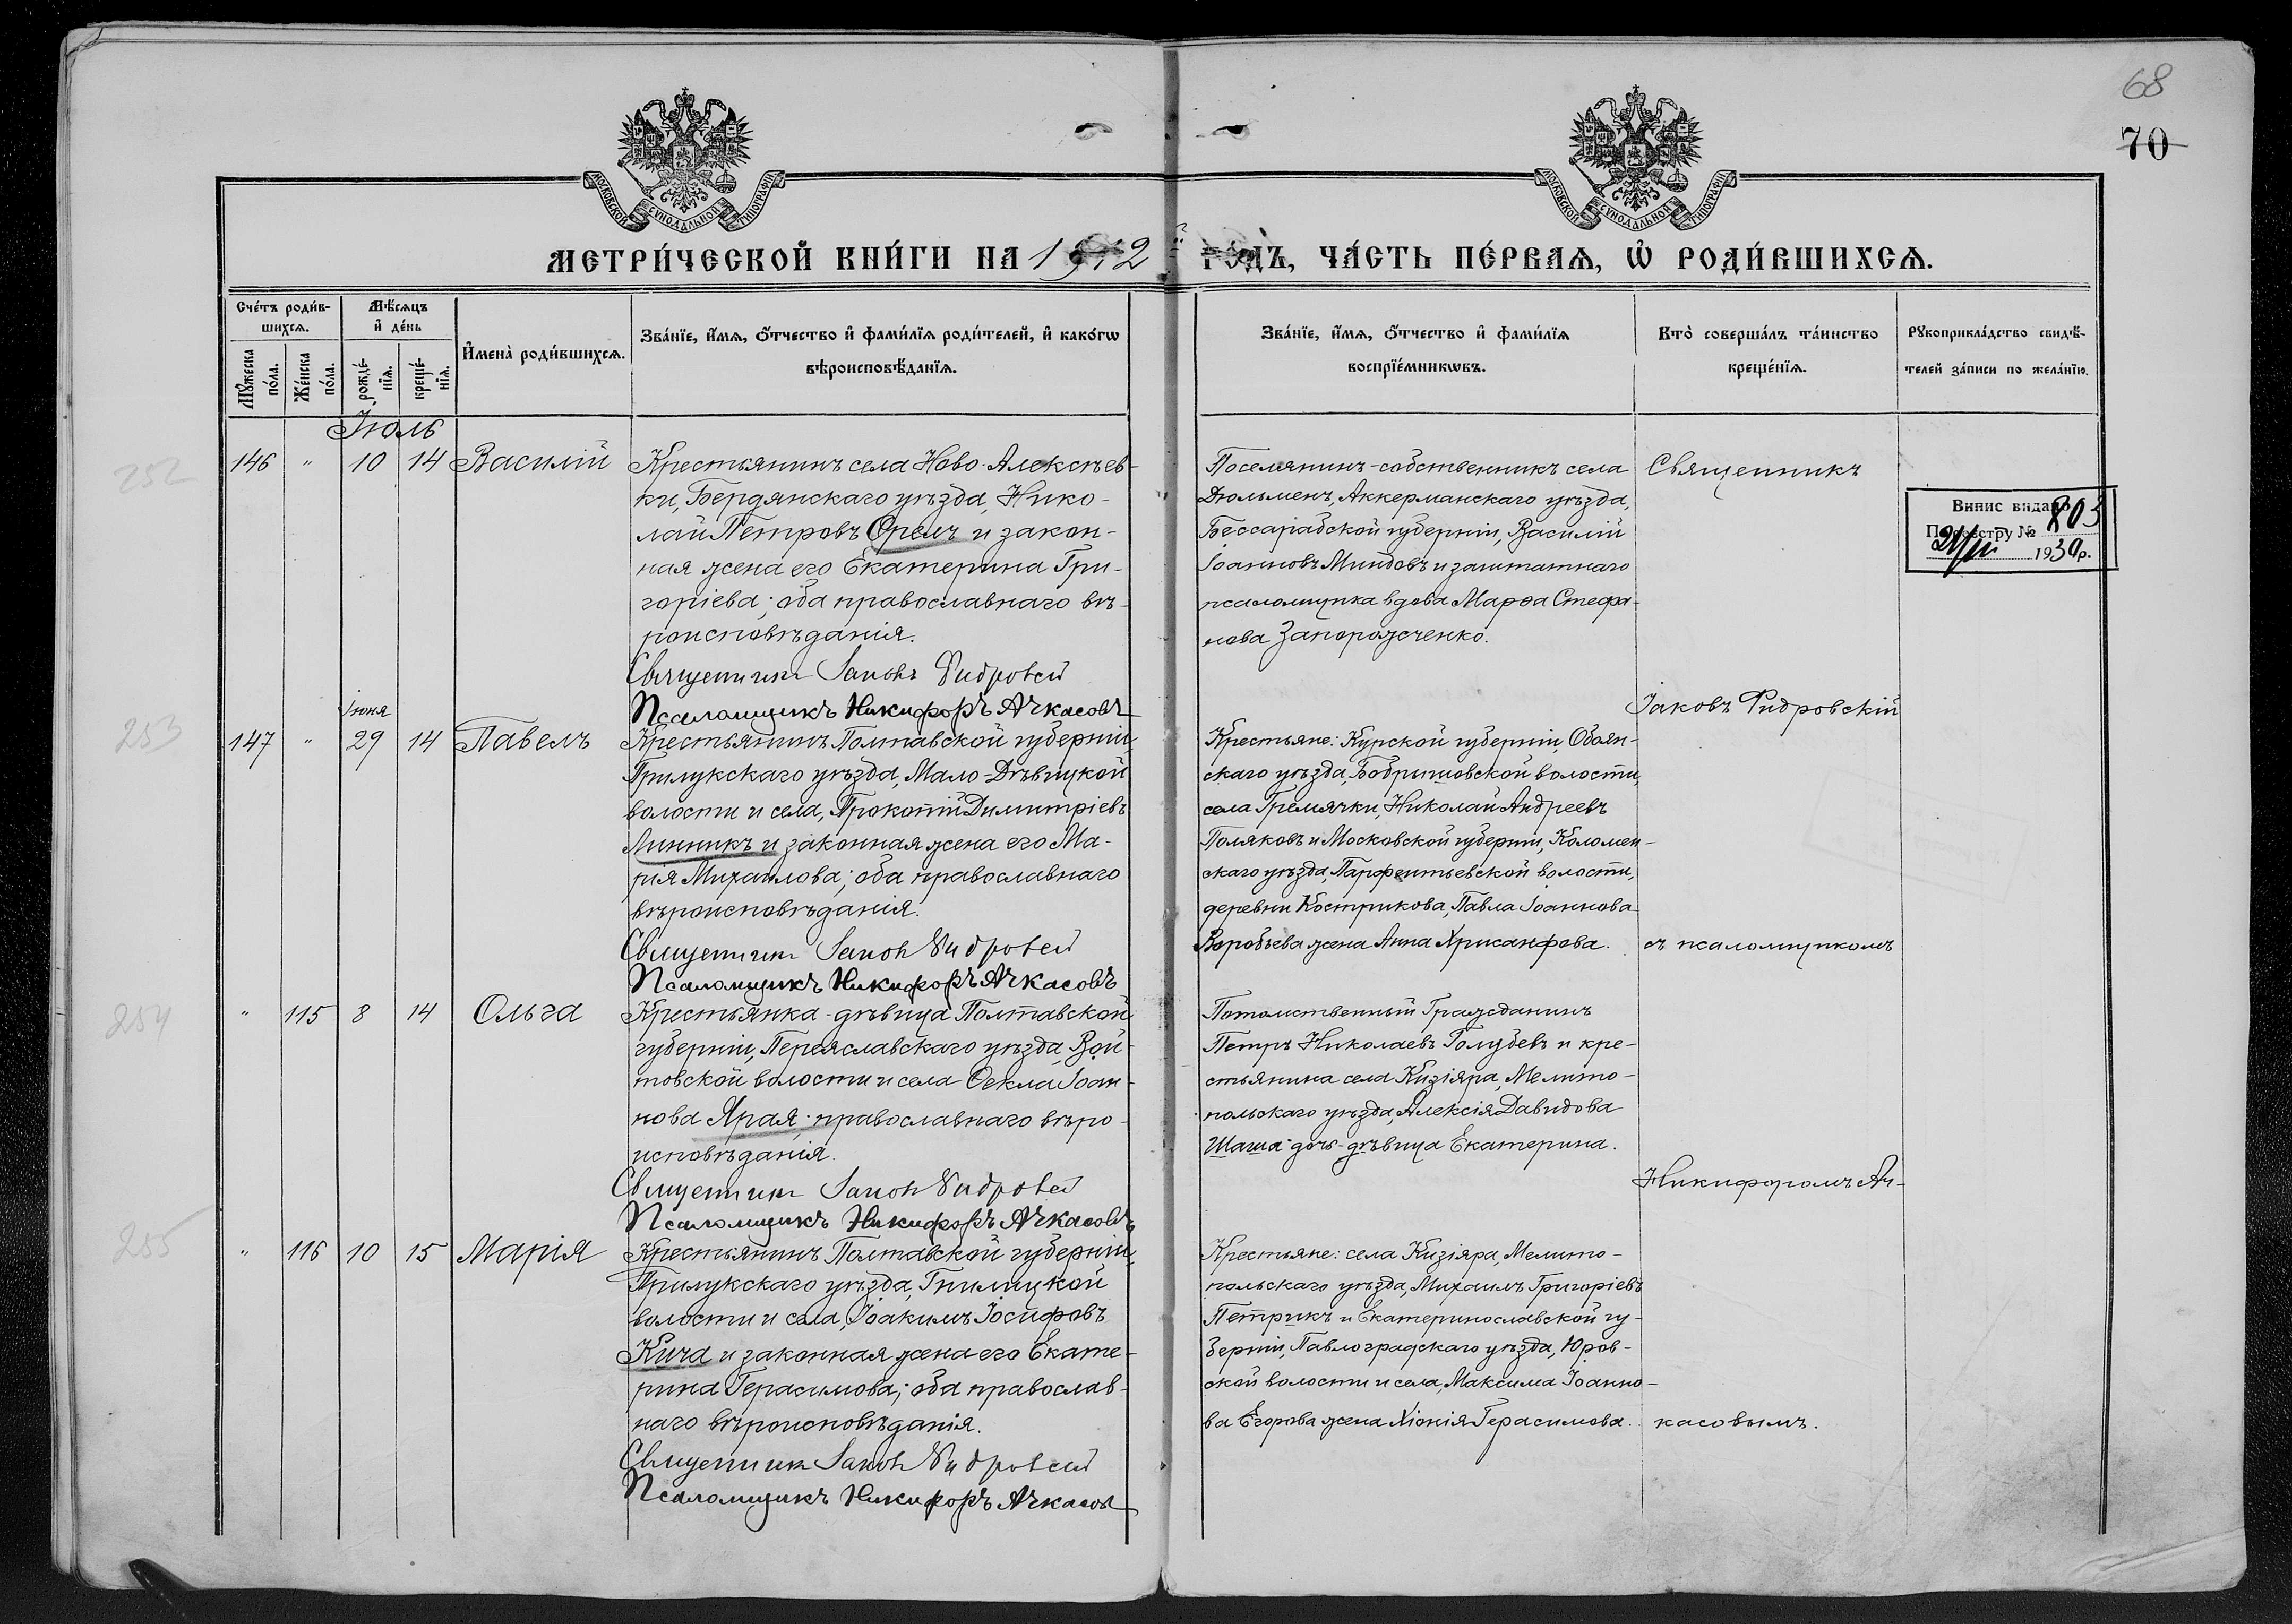 68
70
МОСКОВСКОЙ СѴНОДАЛЬНОЙ ТИПОГРАФІИ
МОСКОВСКОЙ СѴНОДАЛЬНОЙ ТИПОГРАФІИ
МЕТРИ́ЧЕСКОЙ КНИ́ГИ НА 1912 й ГО́ДЪ, ЧА́СТЬ ПЕ́РВАЯ, Ѡ҆ РОДИ́ВШИХСЯ.
Сче́тъ роди́в-
шихсѧ.
Мѣ́сѧцъ
и҆ де́нь
Мꙋ́жеска
по́ла.
Же́нска
по́ла.
рожде́-
нїѧ.
креще́-
нїѧ.
И҆мена̀ роди́вшихсѧ.
Зва́нїе, и҆́мѧ, ѻ҆́тчество и҆ фами́лїѧ роди́телей, и҆ како́гѡ
вѣроисповѣ́данїѧ.
Зва́нїе, и҆́мѧ, ѻ҆́тчество и҆ фами́лїѧ
воспрїе́мникѡвъ.
Кто̀ соверша́лъ та́инство
креще́нїѧ.
Рꙋкоприкла́дство свидѣ́-
телей за́писи по жела́нїю.
Іюль
252
146 " 10 14 Василій
Крестьянинъ села Ново-Алексѣев-
ки, Бердянскаго уѣзда, Нико-
лай Петровъ Орелъ и закон-
ная жена его Екатерина Гри-
горіева; оба православнаго вѣ-
роисповѣданія.
Священникъ Іаковъ Фидровскій
Псаломщикъ Никифоръ Ачкасовъ
Поселянинъ-собственникъ села
Дюльменъ, Аккерманскаго уѣзда,
Бессарабской губерніи, Василій
Іоанновъ Миндовъ и заштатнаго
псаломщика вдова Марѳа Стефа-
нова Запорожченко.
Священникъ
Іаковъ Фидровскій
Випис видано
По реєстру № 803
21/III 1930р.
253
Іюня
147 " 29 14 Павелъ
Крестьянинъ Полтавской губерніи,
Прилукскаго уѣзда, Мало-Дѣвицкой
волости и села, Прокопій Димитріевъ
Линникъ и законная жена его Ма-
рія Михаилова; оба православнаго
вѣроисповѣданія.
Священникъ Іаковъ Фидровскій
Псаломщикъ Никифоръ Ачкасовъ
Крестьяне: Курской губерніи, Обоян-
скаго уѣзда, Бобрышовской волости,
села Гремячки, Николай Андреевъ
Поляковъ и Московской губерніи, Коломен-
скаго уѣзда, Парфентьевской волости,
деревни Кострикова, Павла Іоаннова
Воробьева жена Анна Хрисанфова.
съ псаломщикомъ
254
" 115 8 14 Ольга
Крестьянка-дѣвица Полтавской
губерніи, Переяславскаго уѣзда, Вой-
товской волости и села Ѳекла Іоан-
нова Ярая; православнаго вѣро-
исповѣданія.
Священникъ Іаковъ Фидровскій
Псаломщикъ Никифоръ Ачкасовъ
Потомственный Гражданинъ
Петръ Николаевъ Голубевъ и кре-
стьянина села Кизіяра, Мелито-
польскаго уѣзда, Алексія Давидова
Шаша дочь-дѣвица Екатерина.
Никифоромъ Ач-
255
" 116 10 15 Марія
Крестьянинъ Полтавской губерніи,
Прилукскаго уѣзда, Гнилицкой
волости и села, Іоакимъ Іосифовъ
Кича и законная жена его Екате-
рина Герасимова; оба православ-
наго вѣроисповѣданія.
Священникъ Іаковъ Фидровскій
Псаломщикъ Никифоръ Ачкасовъ
Крестьяне: села Кизіяра, Мелито-
польскаго уѣзда, Михаилъ Григоріевъ
Петрикъ и Екатеринославской гу-
берніи, Павлоградскаго уѣзда, Юров-
ской волости и села, Максима Іоанно-
ва Егорова жена Хіонія Герасимова.
касовымъ.